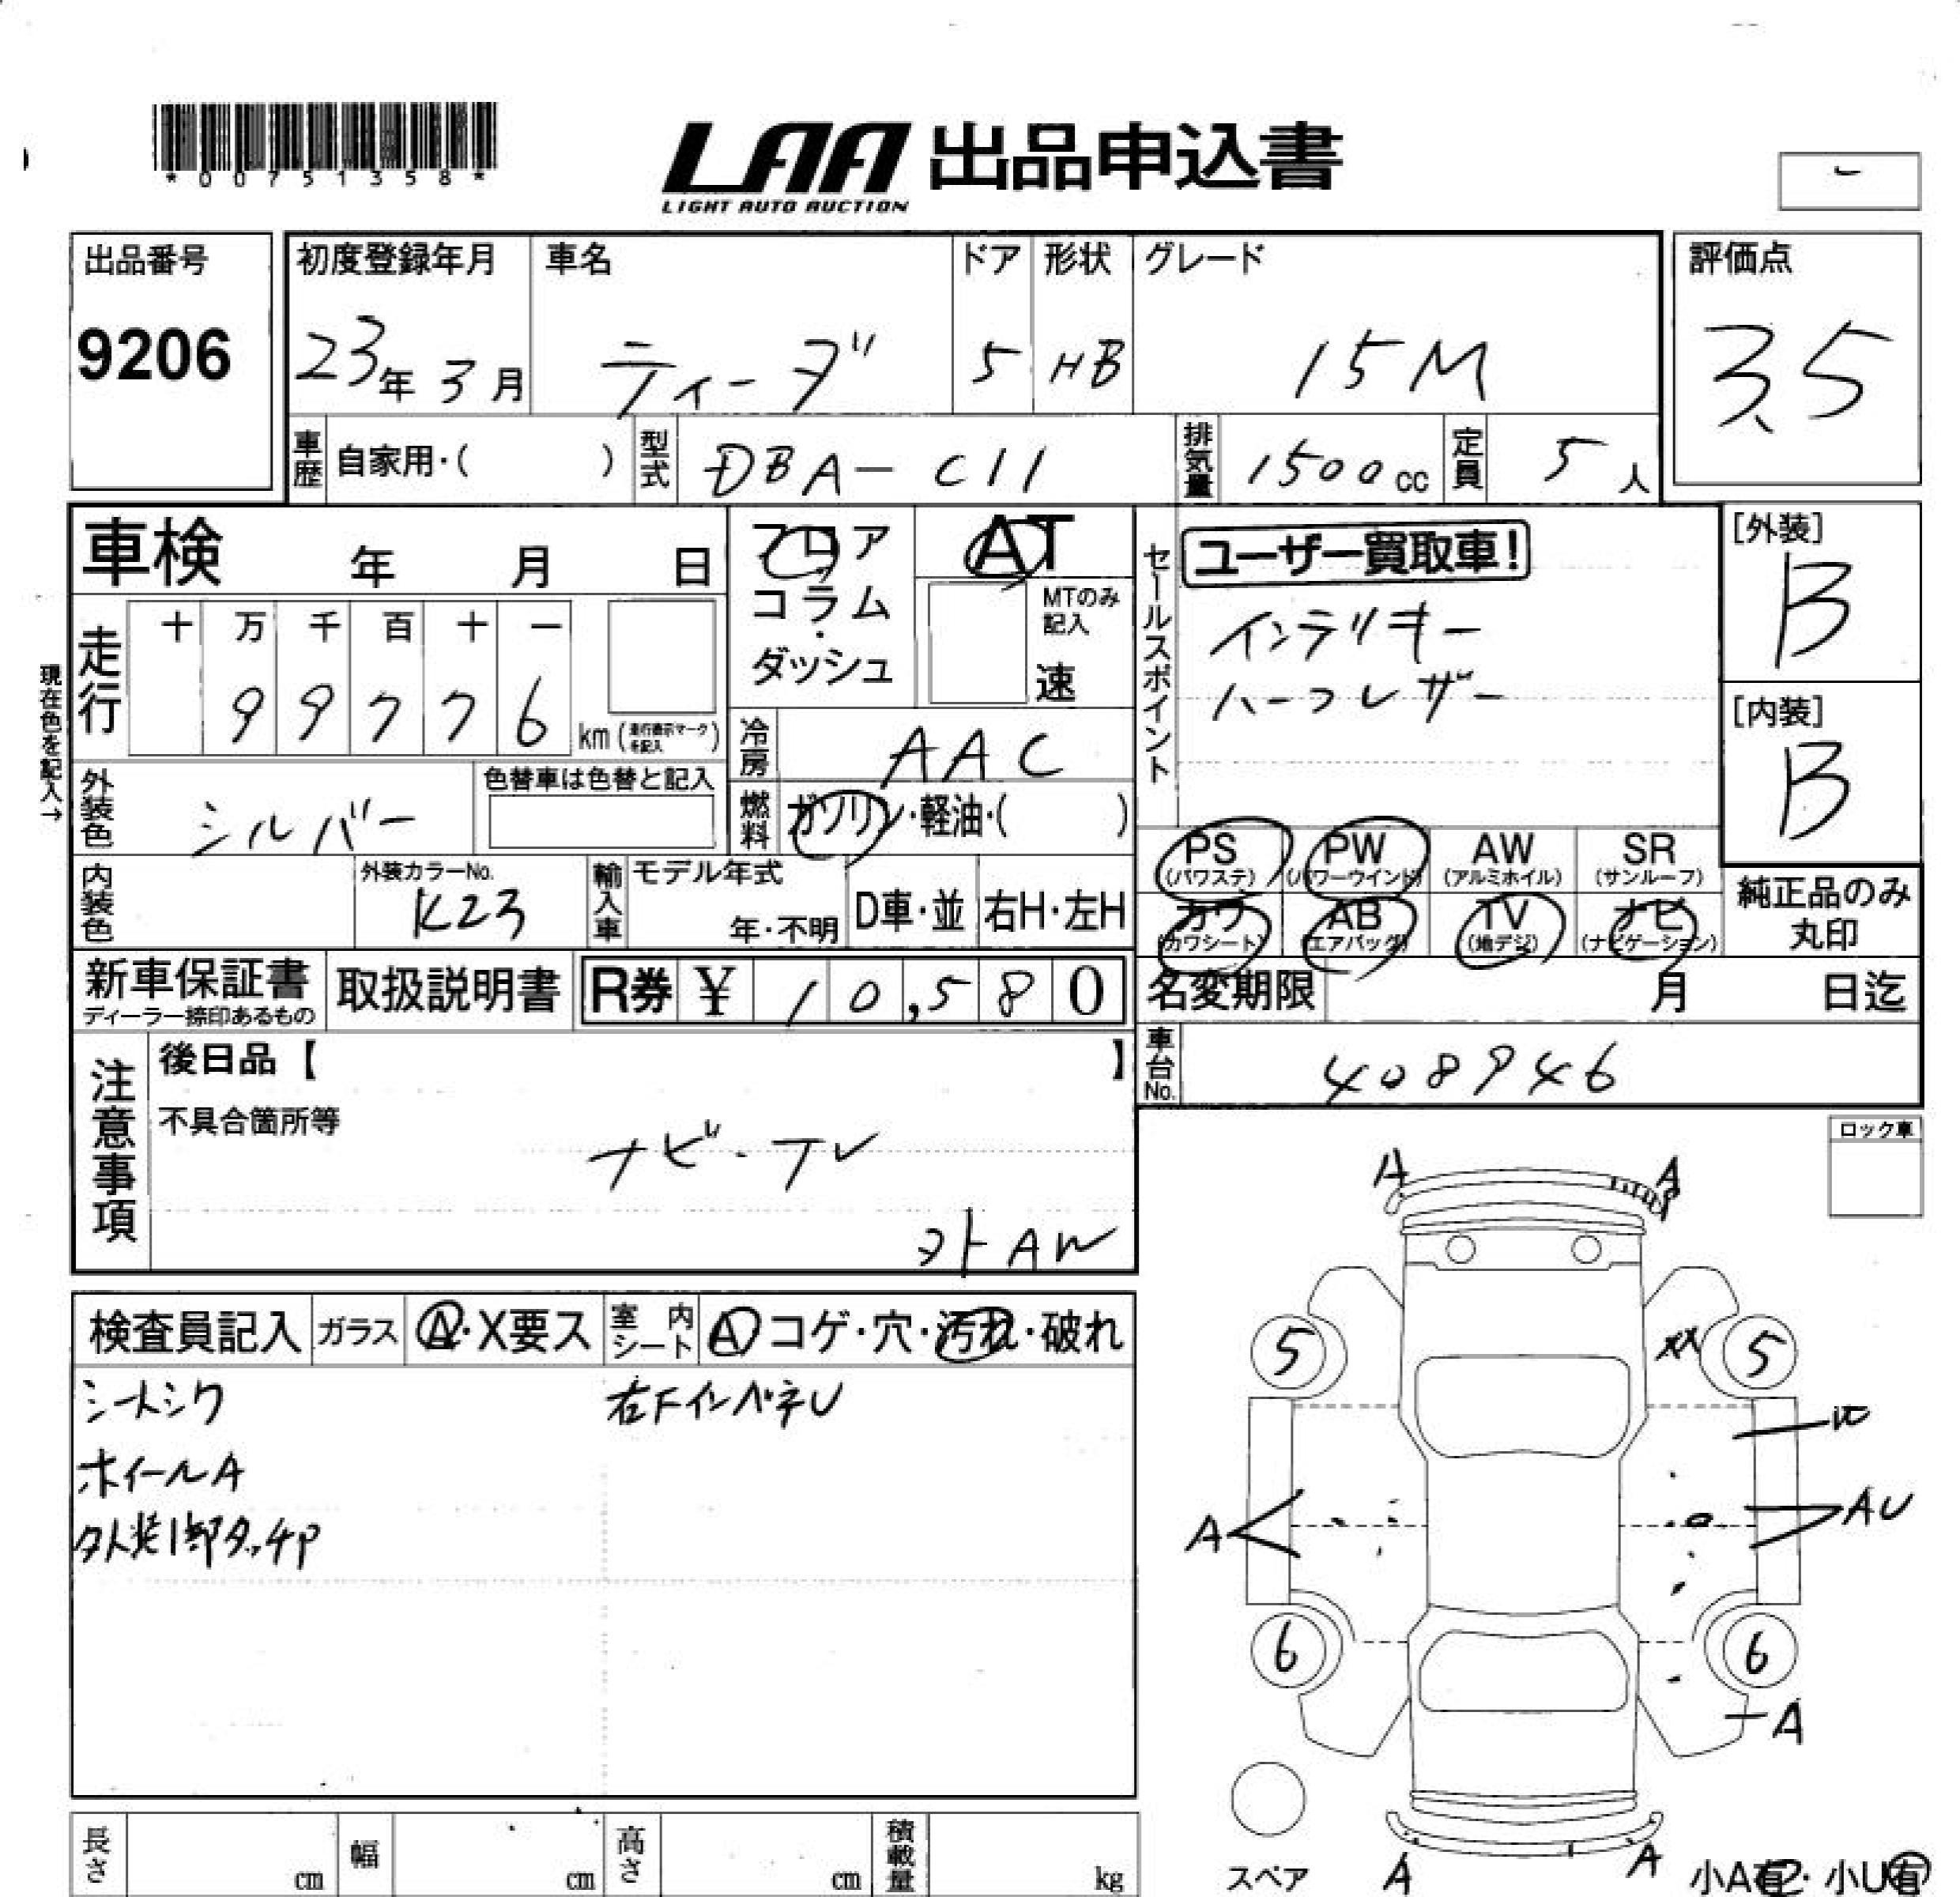 *00751358*
LAA 出品申込書
LIGHT AUTO AUCTION
出品番号
9206
初度登録年月 車名 ドア 形状 グレード
23年 3月 ティーダ 5 HB 15M
評価点
3.5
車歴 自家用・( ) 型式 DBA-C11 排気量 1500cc 定員 5人
車検 年 月 日
フロア
コラム
・
ダッシュ
AT
MTのみ
記入
速
セールスポイント
ユーザー買取車!
インテリキー
ハーフレザー
[外装]
B
[内装]
B
現在色を記入→
走行
十 万 千 百 十 一
9 9 7 7 6 km (走行表示マークを記入)
冷房 AAC
外装色 シルバー 色替車は色替と記入
燃料 ガソリン・軽油・( )
内装色
外装カラーNo.
K23
輸入車 モデル年式
年・不明 D車・並 右H・左H
PS PW AW SR
(パワステ) (パワーウインド) (アルミホイル) (サンルーフ)
カワ AB TV ナビ
(カワシート) (エアバッグ) (地デジ) (ナビゲーション)
純正品のみ
丸印
新車保証書
ディーラー捺印あるもの
取扱説明書 R券 ¥ 10,580
名変期限 月 日迄
車台No. 408946
注意事項
後日品【 】
不具合箇所等
ナビ・TV
外AW
ロック車
検査員記入 ガラス A・X要ス 室内シート A コゲ・穴・汚れ・破れ
シートシワ 右FインパネU
ホイールA
外装1部タッチP
A A
5 XX 5
A AU
6 6
A
A A
スペア
小A有・小U有
長さ cm 幅 cm 高さ cm 積載量 kg